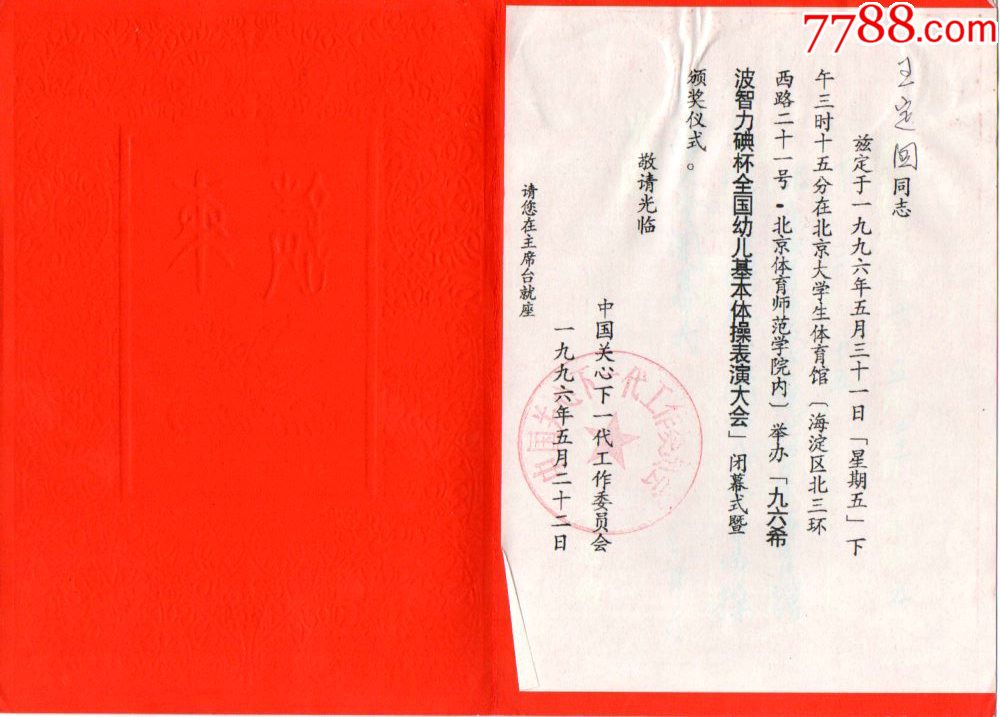 7788.com
王定国同志
兹定于一九九六年五月三十一日「星期五」下
午三时十五分在北京大学生体育馆〔海淀区北三环
西路二十一号·北京体育师范学院内〕举办「九六希
波智力碘杯全国幼儿基本体操表演大会」闭幕式暨
颁奖仪式。
敬请光临
中国关心下一代工作委员会
一九九六年五月二十二日
请您在主席台就座
中国关心下一代工作委员会